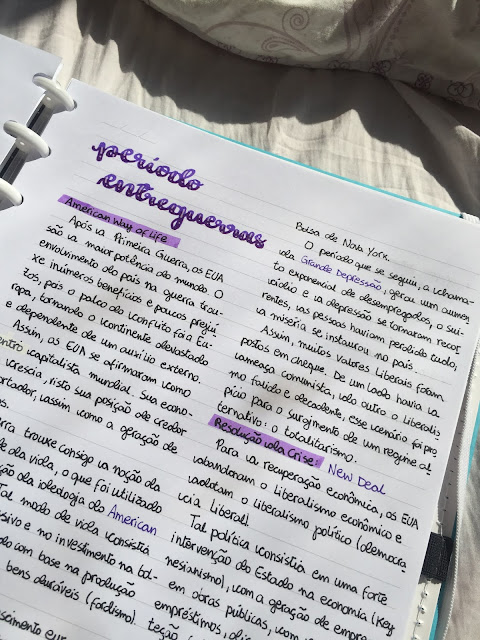 período
entreguerras
American Way of Life
Após a Primeira Guerra, os EUA
são a maior potência do mundo. O
envolvimento do país na guerra trou-
xe inúmeros benefícios e poucos prejuí-
zos, pois o palco do conflito foi a Eu-
ropa, tornando o continente devastado
e dependente de um auxílio externo.
Assim, os EUA se afirmaram como
centro capitalista mundial. Sua econo-
crescia, visto sua posição de credor
ortador, assim como a geração de
os.
rra trouxe consigo a noção da
de da vida, o que foi utilizado
ção da ideologia do American
Tal modo de vida consistia
ssivo e no investimento na bol-
do com base na produção
bens duráveis (fordismo).
scimento eur
Bolsa de Nova York.
O período que se seguiu, a chama-
da Grande Depressão, gerou um aumen
to exponencial de desempregados, o sui-
cídio e a depressão se tornaram recor
rentes, as pessoas haviam perdido tudo,
a miséria se instaurou no país.
Assim, muitos valores liberais foram
postos em cheque. De um lado havia a
ameaça comunista, do outro o liberalis
mo falido e decadente, esse cenário foi pro
pício para o surgimento de um regime al
ternativo: o totalitarismo.
Resolução da Crise: New Deal
Para a recuperação econômica, os EUA
abandonam o liberalismo econômico e
adotam o liberalismo político (democra
cia liberal).
Tal política consistia em uma forte
intervenção do Estado na economia (Key
nesianismo), com a geração de empre
em obras públicas, com
empréstimos,